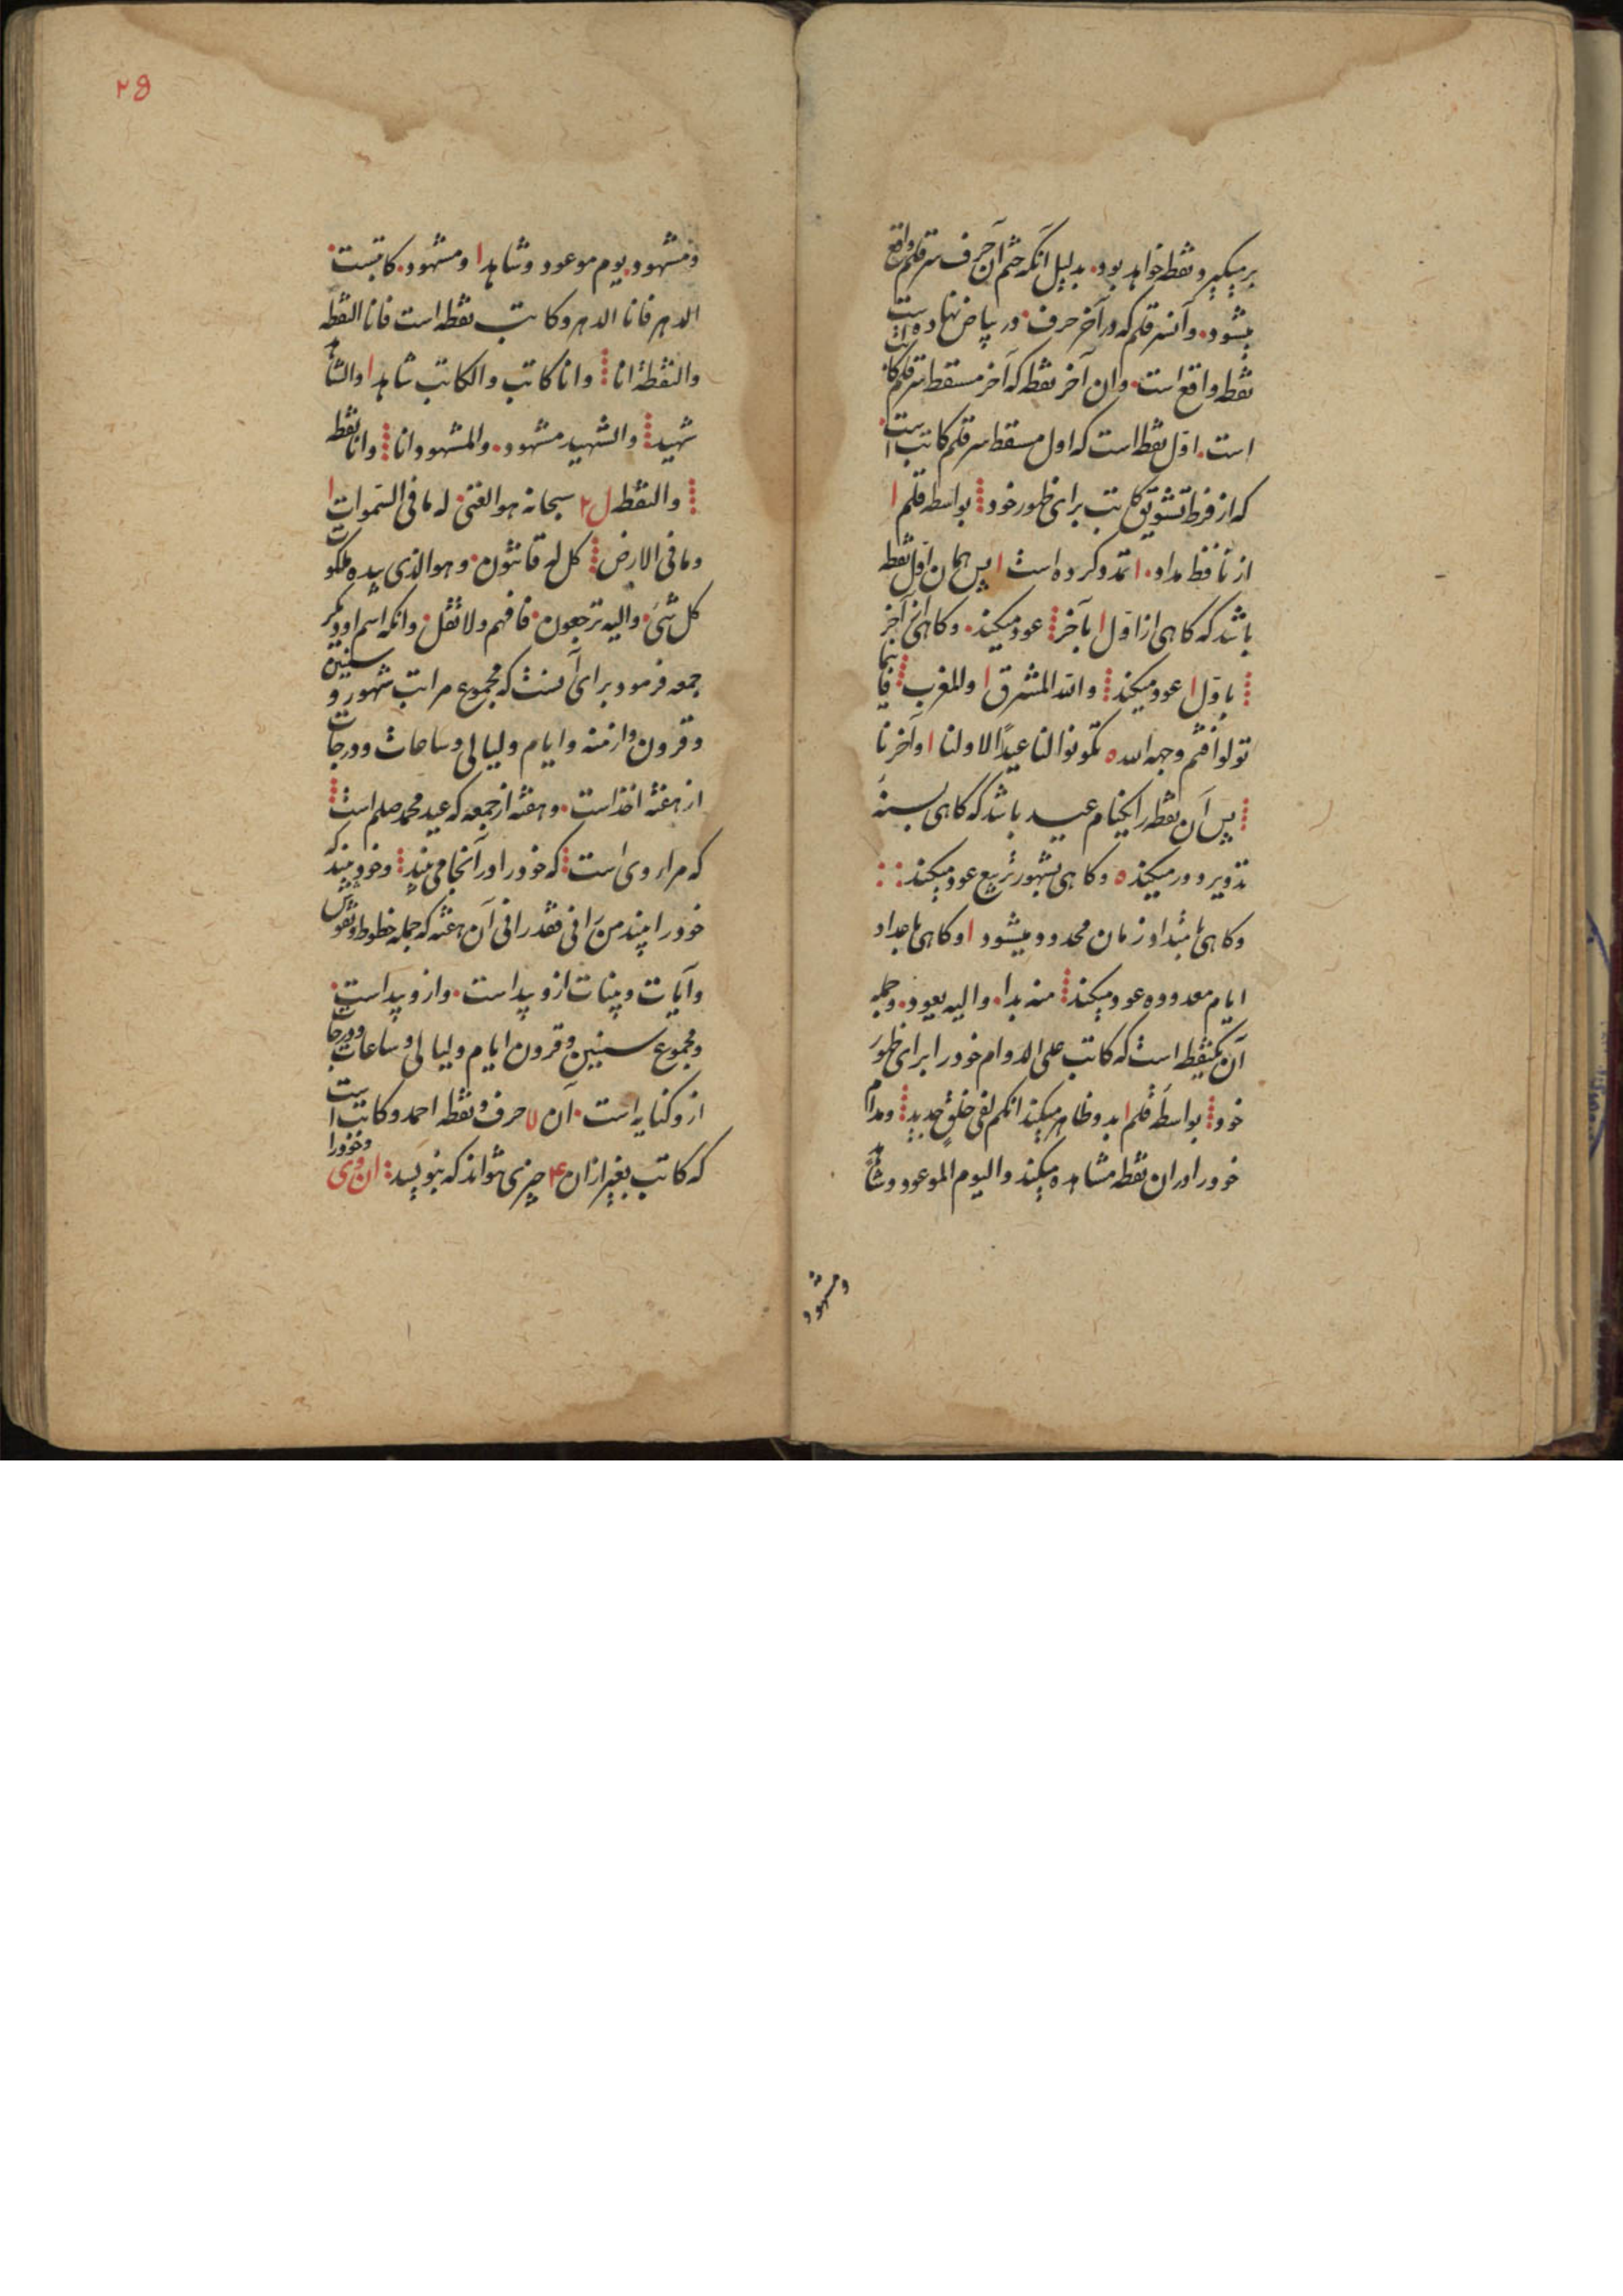 برمیگیرد نقطه خواهد بود. بدلیل آنکه ختم آن حرف سر قلم واقع
میشود. و آن سر قلم که در آخر حرف. در بیاض نهاده است
نقطه واقع است. و ان آخر نقطه که آخر مسقط سر قلم کاتب
است. اوّل نقطه است که اول مسقط سر قلم کاتب است.
که از فرط تشویق کاتب برای ظهور خود بواسطه قلم ا
از نقط مداد. ا تمدد کرده است ا پس همان اوّل نقطه
باشد که کاهی از اوّل ا بآخر عود میکند. و کاهی از آخر
باوّل ا عود میکند ولله المشرق ا والمغرب فاینما
تولوا فثم وجه الله ه تکونوا لنا عیداً لاولنا ا و آخرنا
پس آن نقطه را یکنام عید باشد که کاهی بسنهٔ
تدویر دور میکند ه و کاهی بشهور تربیع عود میکند
و کاهی بامتداد زمان محدود میشود ا و کاهی باعداد
ایام معدوده عود میکند منه بدا. والیه یعود. و جمله
آن یکنقطه است که کاتب علی الدوام خود را برای ظهور
خود بواسطهٔ قلم ا بدو ظاهر میکند انکم لفی خلق جدید و مدام
خود را در ان نقطه مشاهده میکند والیوم الموعود و شاهد
و مشهود
۲۵
و مشهود. یوم موعود و شاهد ا و مشهود. کاتبست.
الدهر فانا الدهر و کاتب نقطه است فانا النقطه
والنقطة انا وانا کاتب والکاتب شاهد ا والشاهد
شهید والشهید مشهود. والمشهود انا وانا نقطه
والنقطه ل۲ سبحانه هو الغنی له ما فی السموات ا
وما فی الارض کل له قانتون. وهو الذی بیده ملکوت
کل شیء. والیه ترجعون. فافهم ولا تقل. وانکه اسم او دیکر
جمعه فرمود برای آنست که مجموع مراتب شهور و سنین
و قرون و ازمنه و ایام و لیالی و ساعات و درجات
از هفته اخذ است. و هفته از جمعه که عید محمد صلم است
که مراد وی است که خود را در آنجا می بیند و خود بیند که
خود را بیند من رانی فقد رانی آن هفته که جمله خطوط و نقوش
و آیات و بینات ازو پیداست. و ازو پیداست.
و مجموع سنین و قرون ایام و لیالی و ساعات و درجات
ازو کنایه است. آن ۷ حرف و نقطه احمد و کاتب است
که کاتب بغیر ازان ۴ چیزی نتواند که بنویسد ان وی و خود را